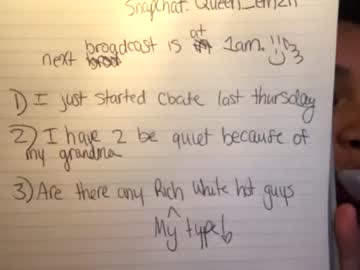 Snapchat: Queen_
next brogdcast is at 1am.
1) I just started cbate last thursday
2) I have 2 be quiet because of
my grandma
3) Are there any Rich White hot guys
My type